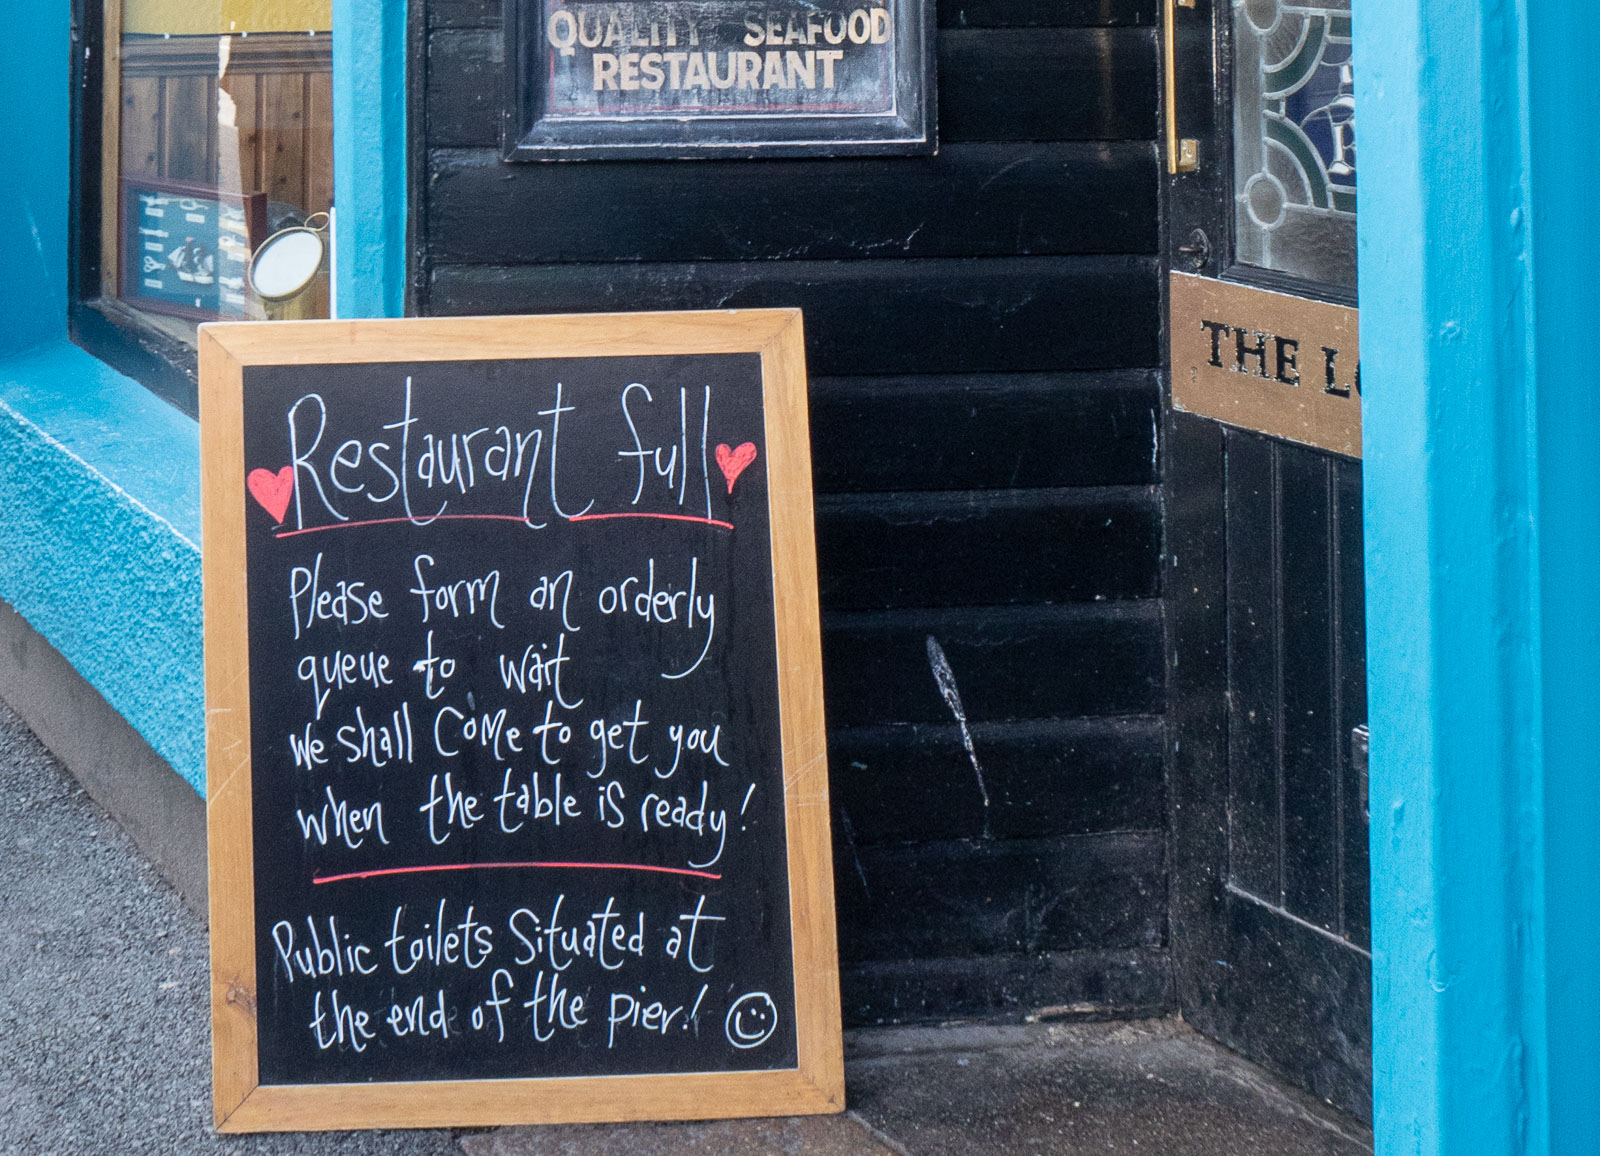 QUALITY SEAFOOD
RESTAURANT
THE L
Restaurant full
Please form an orderly
queue to wait
we shall come to get you
when the table is ready!
Public toilets situated at
the end of the pier!